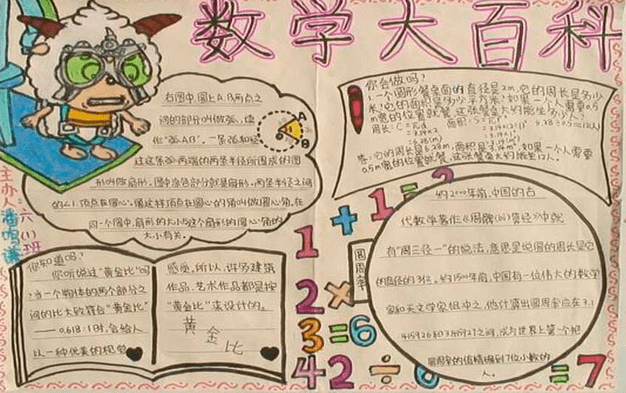 数学大百科
右图中,圆上A、B两点之
间的部分叫做弧,读
作"弧AB",一条弧和经
过这条弧两端的两条半径所围成的图
形叫做扇形。图中涂色部分就是扇形。两条半径之间
的∠1,顶点在圆心。像这样顶点在圆心的角叫做圆心角。在
同一个圆中,扇形的大小与这个扇形的圆心角的
大小有关。
A
B
你会做吗?
1.一个圆形餐桌面的直径是2m,它的周长是多少
米?它的面积是多少平方米?如果一个人需要0.5
m宽的位置就餐,这张餐桌大约能坐多少人?
周长:C=πd
=3.14×2
答:它的周长是6.28m,面积是3.14m²,如果一个人需要
0.5m宽的位置就餐,这张餐桌大约能坐12人。
主办人:
六(1)班
你知道吗?
你听说过"黄金比"吗
?当一个物体的两个部分之
间的比大致符合"黄金比"
——0.618:1时,会给人
以一种优美的视觉
感受。所以,许多建筑
作品、艺术作品都是按
"黄金比"来设计的。
黄金比
1+1=2
2×
3=6
42÷6=7
圆周率
约2000年前,中国的古
代数学著作《周髀算经》中就
有"周三径一"的说法,意思是说圆的周长是它
的直径的3倍。约1500年前,中国有一位伟大的数学
家和天文学家祖冲之,他计算出圆周率应在3.1
415926和3.1415927之间,成为世界上第一个把
圆周率的值精确到7位小数的
人。